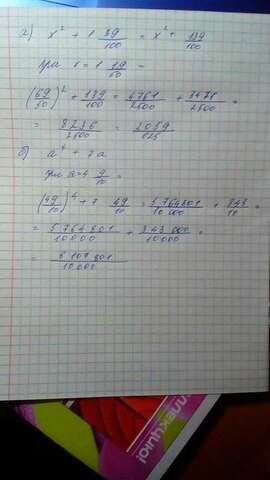 а) x² + 1 39/100 = x² + 139/100
при x = 1 19/50 =
(69/50)² + 139/100 = 4761/2500 + 3475/2500 =
= 8236/2500 = 2059/625
б) a⁴ + 7a
при a = 4 9/10 =
(49/10)⁴ + 7 49/10 = 5764801/10000 + 343/10 =
= 5764801/10000 + 343000/10000 =
= 6107801/10000